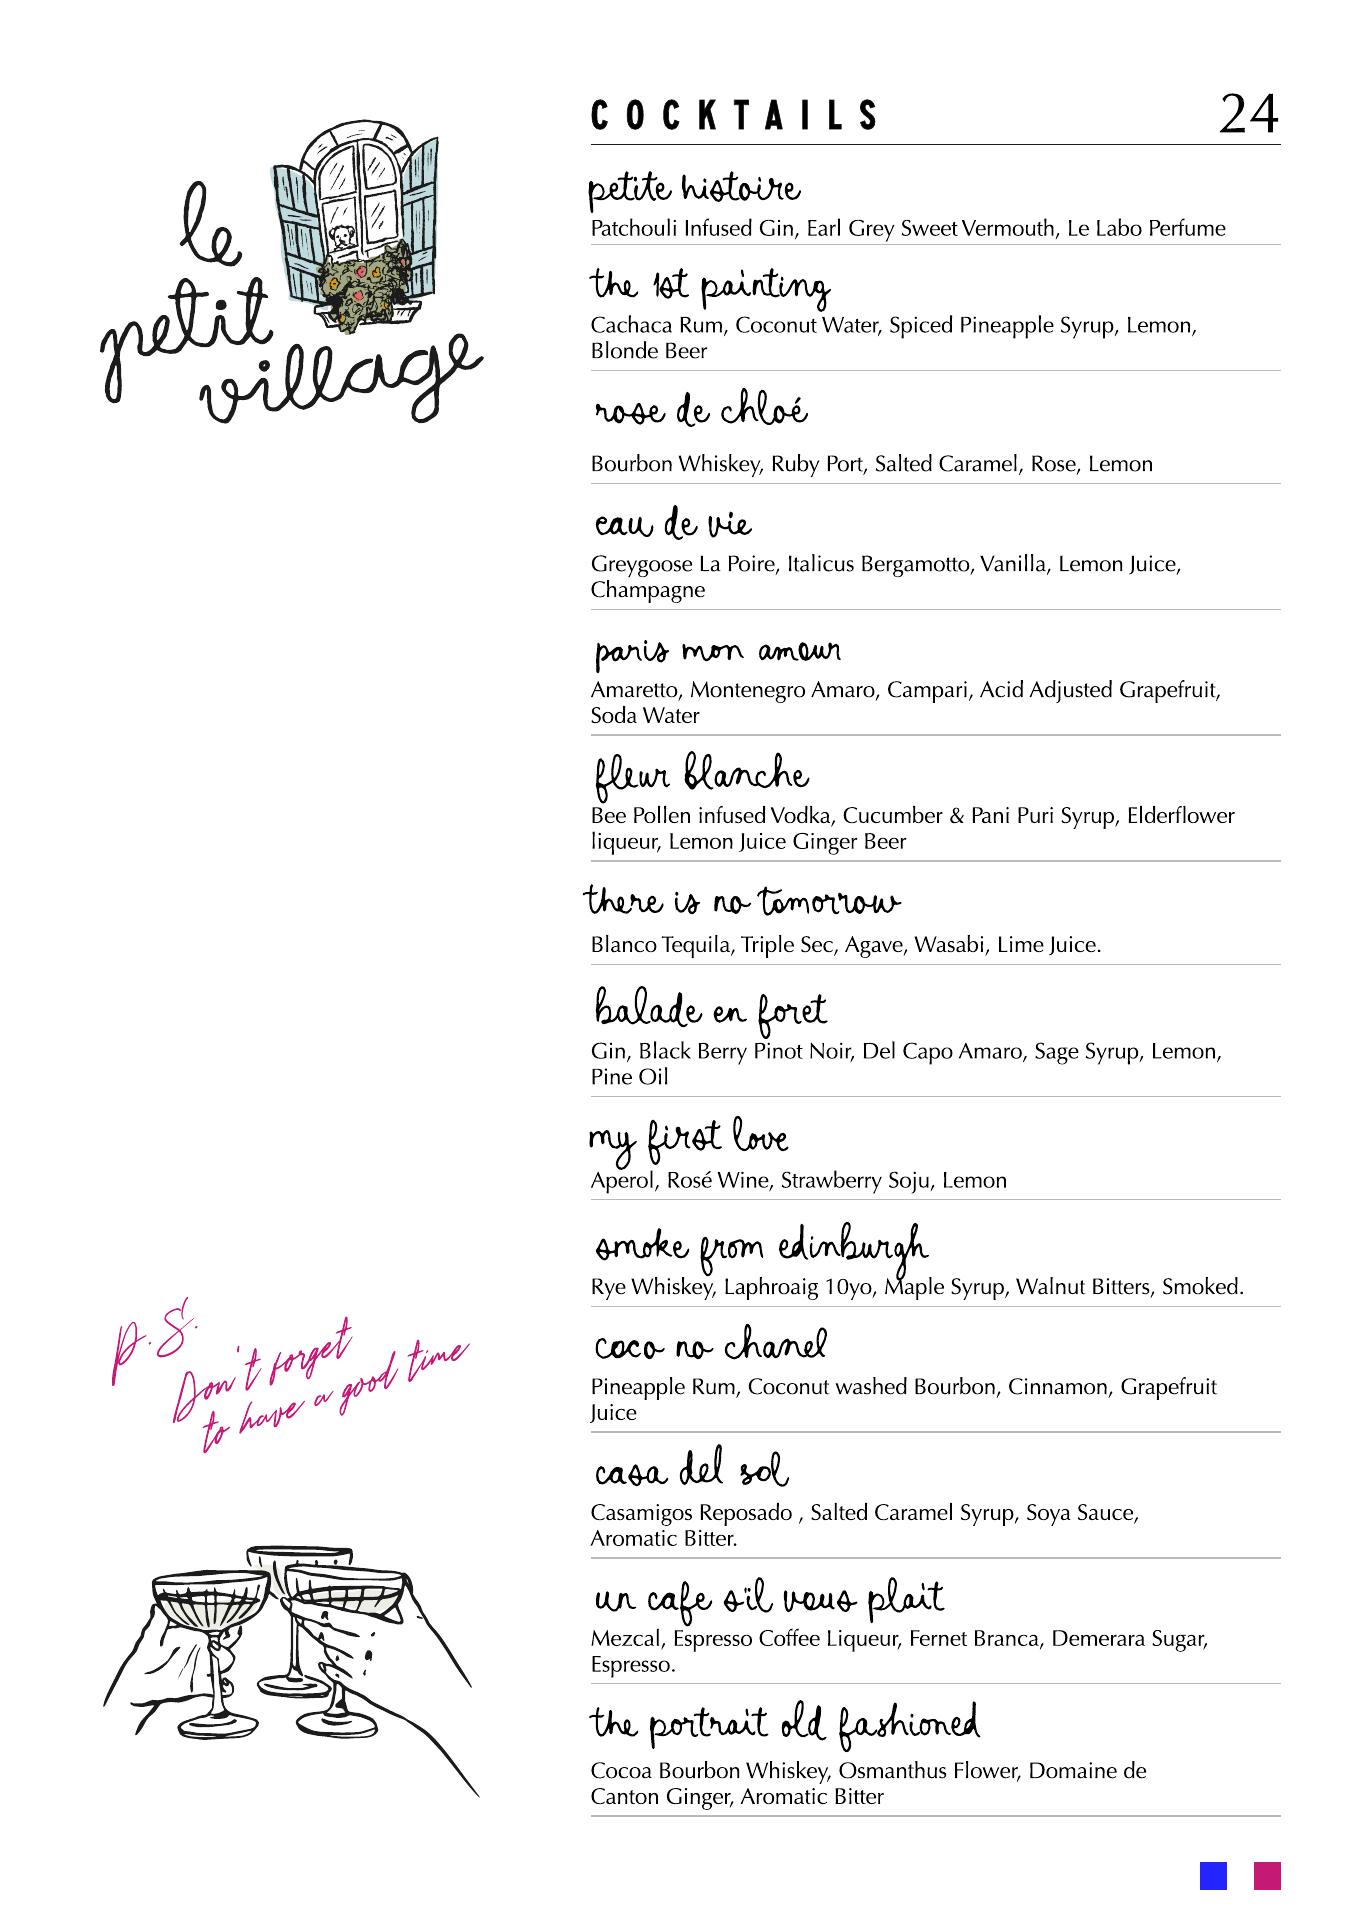 le
petit
village
COCKTAILS 24
petite histoire
Patchouli Infused Gin, Earl Grey Sweet Vermouth, Le Labo Perfume
the 1st painting
Cachaca Rum, Coconut Water, Spiced Pineapple Syrup, Lemon,
Blonde Beer
rose de chloé
Bourbon Whiskey, Ruby Port, Salted Caramel, Rose, Lemon
eau de vie
Greygoose La Poire, Italicus Bergamotto, Vanilla, Lemon Juice,
Champagne
paris mon amour
Amaretto, Montenegro Amaro, Campari, Acid Adjusted Grapefruit,
Soda Water
fleur blanche
Bee Pollen infused Vodka, Cucumber & Pani Puri Syrup, Elderflower
liqueur, Lemon Juice Ginger Beer
there is no tomorrow
Blanco Tequila, Triple Sec, Agave, Wasabi, Lime Juice.
balade en foret
Gin, Black Berry Pinot Noir, Del Capo Amaro, Sage Syrup, Lemon,
Pine Oil
my first love
Aperol, Rosé Wine, Strawberry Soju, Lemon
smoke from edinburgh
Rye Whiskey, Laphroaig 10yo, Maple Syrup, Walnut Bitters, Smoked.
coco no chanel
Pineapple Rum, Coconut washed Bourbon, Cinnamon, Grapefruit
Juice
casa del sol
Casamigos Reposado , Salted Caramel Syrup, Soya Sauce,
Aromatic Bitter.
un cafe s'il vous plait
Mezcal, Espresso Coffee Liqueur, Fernet Branca, Demerara Sugar,
Espresso.
the portrait old fashioned
Cocoa Bourbon Whiskey, Osmanthus Flower, Domaine de
Canton Ginger, Aromatic Bitter
P.S.
Don't forget
to have a good time